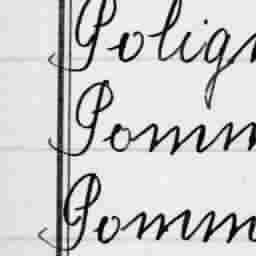 Polign
Pomm
Pomm